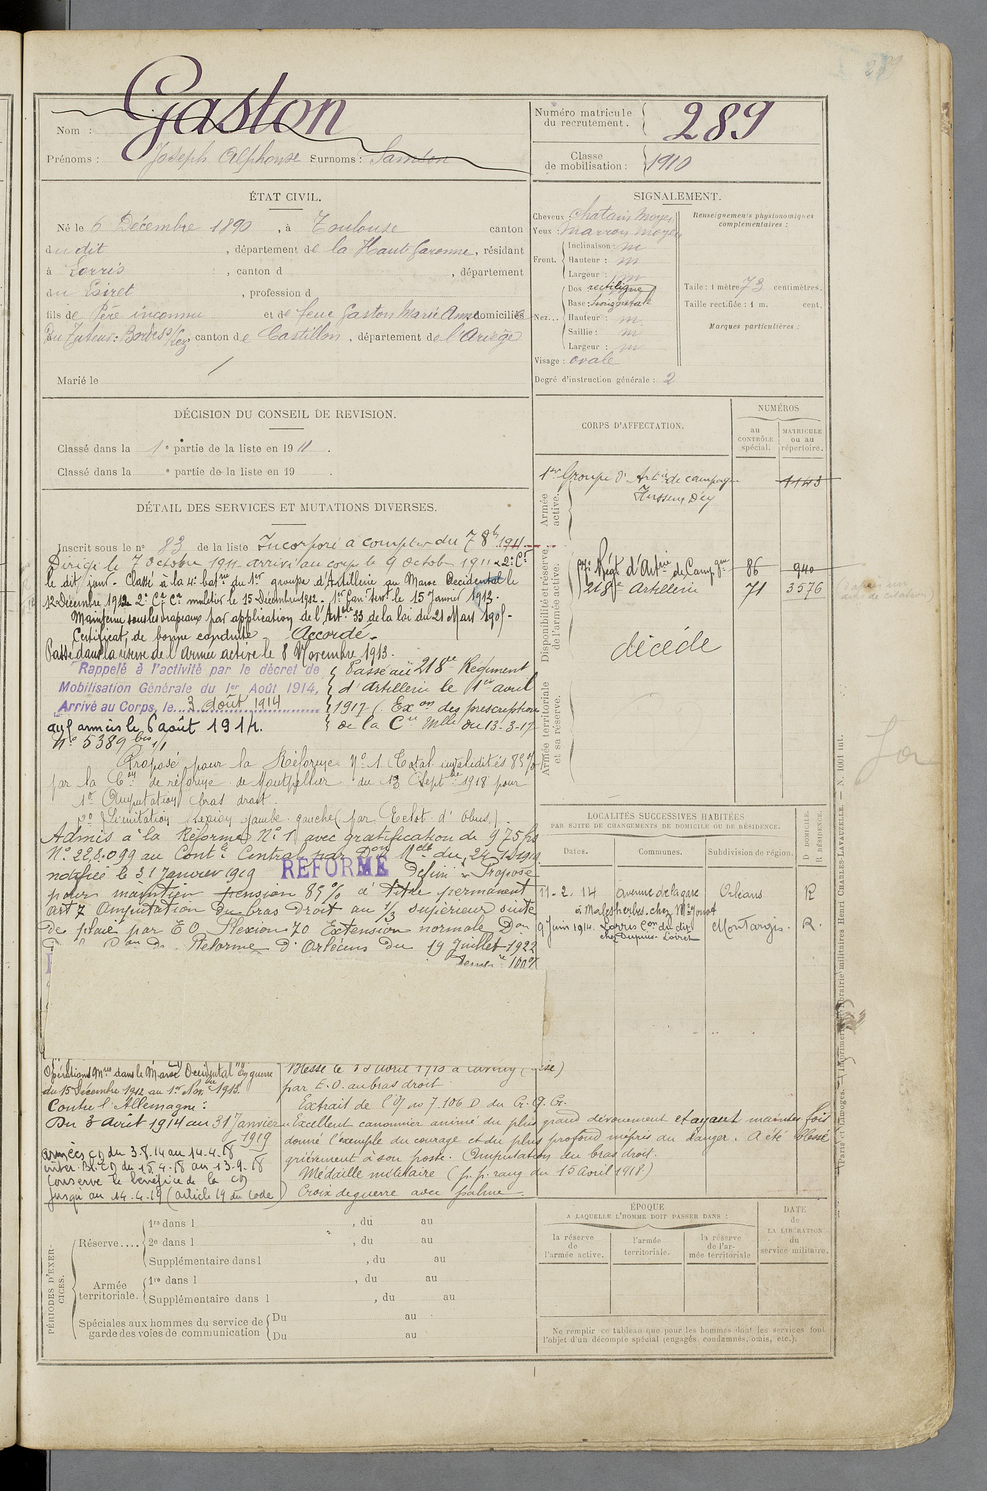 Nom : Gaston
Prénoms : Joseph Alphonse Surnoms :
Numéro matricule du recrutement. 289
Classe de mobilisation : 1910
ÉTAT CIVIL.
Né le 6 Décembre 1890, à Toulouse canton
du dit, département de la Haute Garonne, résidant
à Lorris, canton d , département
du Loiret, profession d
fils de Père inconnu et de feue Gaston Marie Anne domiciliés
canton de Castillon, département de l'Ariège
Marié le
SIGNALEMENT.
Cheveux : chatain moyen
Yeux : marron moyen
Front. Inclinaison : m
Hauteur : m
Largeur : m
Nez... Dos rectiligne
Base : horizontale
Hauteur : m
Saillie : m
Largeur : m
Visage : ovale
Degré d'instruction générale : 2
Renseignements physionomiques complémentaires :
Taille : 1 mètre 73 centimètres.
Taille rectifiée : 1 m. cent.
Marques particulières :
DÉCISION DU CONSEIL DE REVISION.
Classé dans la 1e partie de la liste en 1911.
Classé dans la e partie de la liste en 19 .
CORPS D'AFFECTATION.
NUMÉROS
au CONTRÔLE spécial.
MATRICULE ou au répertoire.
Armée active.
1er Groupe d'Artie de campagne 1143
Hussein Dey
Disponibilité et réserve de l'armée active.
Régt d'Artie de Campgne 86 940
218e Artillerie 71 3576
décédé
Armée territoriale et sa réserve.
DÉTAIL DES SERVICES ET MUTATIONS DIVERSES.
Inscrit sous le no 83 de la liste Incorporé à compter du 7 8bre 1911
Dirigé le 7 octobre 1911 arrivé au corps le 9 octobre 1911 2e Cr
le dit jour. Classé à la 4e batie du 1er groupe d'Artillerie au Maroc Occidental le
12 Décembre 1912 2e Cr Cr muletier le 15 Décembre 1912. 1er Can Servt le 15 Janvier 1913.
Maintenu sous les drapeaux par application de l'Art 33 de la loi du 21 Mars 1905.
Certificat de bonne conduite Accordé.
Passé dans la réserve de l'armée active le 8 Novembre 1913.
Rappelé à l'activité par le décret de
Mobilisation Générale du 1er Août 1914,
Arrivé au Corps, le 3 août 1914
aux armées le 6 août 1914.
Passé au 218me Régiment
d'Artillerie le 1er avril
1917 (Exon des prescriptions
de la Cre Mlle du 13-3-17
No 5389 bis 1/1
Proposé pour la Réforme No 1 (total invalidités 85 %)
par la Con de réforme de Montpellier du 13 Septbre 1918 pour
1o Amputation bras droit.
2o Limitation flexion jambe gauche par Eclat d'obus.
Admis à la Réforme No 1 avec gratification de 925 frs
No 228.099 au Contle Central
notifiée le 31 Janvier 1919
RÉFORMÉ
Défini Proposé
pour maintien pension 85 % à titre permanent
art 7 Amputation du bras droit au 1/3 supérieur suite
de plaie par E O Flexion 70 Extension normale Don
Réforme d'Orléans du 19 Juillet 1922
100%
LOCALITÉS SUCCESSIVES HABITÉES
PAR SUITE DE CHANGEMENTS DE DOMICILE OU DE RÉSIDENCE.
Dates. Communes. Subdivision de région. D DOMICILE. R RÉSIDENCE.
11-2-14 Avenue de la gare Orléans R
à Malesherbes chez Mr
9 Juin 1914. Lorris con du dit Montargis. R.
chez Dupuis Loiret
Opérations Mres dans le Maroc Occidental en guerre
du 15 Décembre 1912 au 1er Nov 1913.
Contre l'Allemagne :
Du 3 Août 1914 au 31 Janvier
1919
armées CD du 3.8.14 au 14.4.18
inter. B.CD du 15.4.18 au 13.9.18
Conserve le bénéfice de la CD
jusqu'au 14.4.19 (article 19 du Code)
par E.O. au bras droit
Extrait de l'O/ no 7.106 D. du Gr. Q. Gr.
Excellent canonnier animé du plus grand dévouement et ayant maintes fois
donné l'exemple du courage et du plus profond mépris du danger. A été blessé
grièvement à son poste. Amputation du bras droit.
Médaille militaire (p. p. rang du 15 Avril 1918)
Croix de guerre avec palme
PÉRIODES D'EXERCICES.
Réserve.... 1re dans l , du au
2e dans l , du au
Supplémentaire dans l , du au
Armée territoriale. 1re dans l , du au
Supplémentaire dans l , du au
Spéciales aux hommes du service de garde des voies de communication Du au
Du au
ÉPOQUE
A LAQUELLE L'HOMME DOIT PASSER DANS :
la réserve de l'armée active.
l'armée territoriale.
la réserve de l'armée territoriale
DATE de LA LIBÉRATION du service militaire.
Ne remplir ce tableau que pour les hommes dont les services font
l'objet d'un décompte spécial (engagés, condamnés, omis, etc.).
Paris et Limoges. — Imprimerie et librairie militaires Henri CHARLES-LAVAUZELLE. — N. 1001 int.